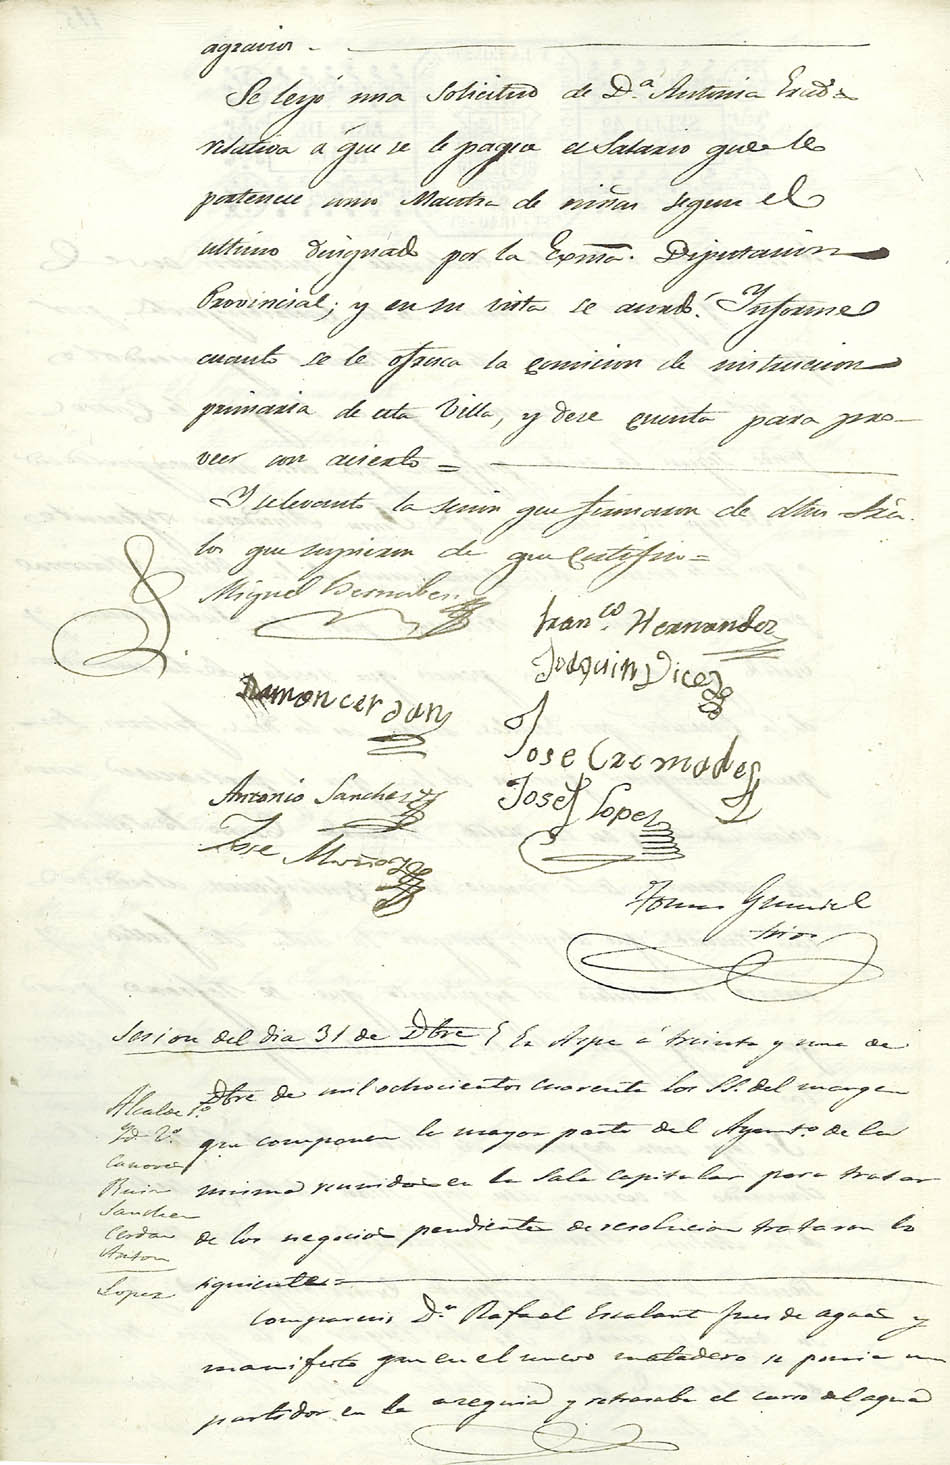 agravios.
Se leyó una solicitud de D.ª Antonia
relativa á que se le pague el Salario que le
pertenece como Maestra de niñas segun el
ultimo designado por la Exma. Diputacion
Provincial; y en su vista se acordó: Informe
cuanto se le ofresca la comision de instruccion
primaria de esta Villa, y dese cuenta para pro-
veer con acierto =
Y se levantó la sesion que firmaron de dhos Sres.
los que supieron de que Certifico =
Miguel Bernabeu
Franco. Hernandez
Joaquin Dicedo
Ramon cerdan
Jose Cremades
Antonio Sanchez
Josef Lopez
Jose Muñoz
Tomas Gumiel
srio
Sesion del dia 31 de Dbre { En Aspe á treinta y uno de
Dbre de mil ochocientos cuarenta los SS. del margen
que componen la mayor parte del Ayunto. de la
misma reunidos en la Sala capitular para tratar
de los negocios pendientes de resolucion trataron lo
siguiente =
Alcalde 1.º
Yd. 2.º
Canovas
Ruiz
Sanchez
Cerdan
Anton
Lopez
Comparecio D.n Rafael Escalant juez de aguas y
manifesto que en el nuevo matadero se ponia un
partidor en la azequia y retrasaba el curso del agua